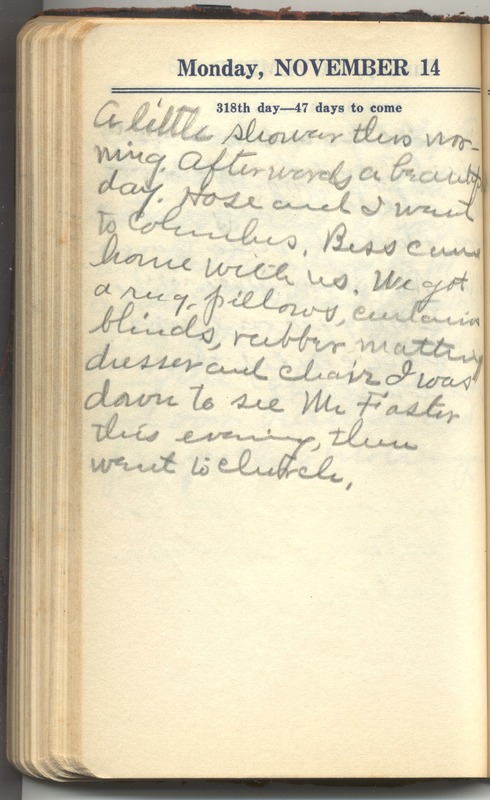 Monday, NOVEMBER 14
318th day—47 days to come
A little shower this mor-
ning. Afterwards a beautiful
day. Hose and I went
to Columbus. Bess came
home with us. We got
a rug, pillows, curtains
blinds, rubber matting
dresser and chair I was
down to see Mr Foster
this evening, then
went to church.